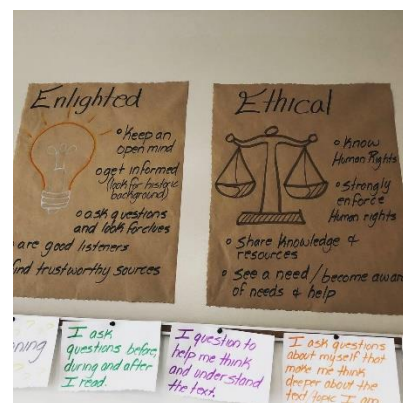 Enlighted
Keep an
open mind
get informed
(look for historic
background)
ask questions
and look for clues
are good listeners
find trustworthy sources
Ethical
Know
Human Rights
Strongly
enforce
Human rights
Share Knowledge &
resources
See a need / become awar
of needs & help
ning
I ask
questions before,
during and after
I read.
I question to
help me think
and understand
the text.
I ask questions
about myself that
make me think
deeper about the
text topic I am